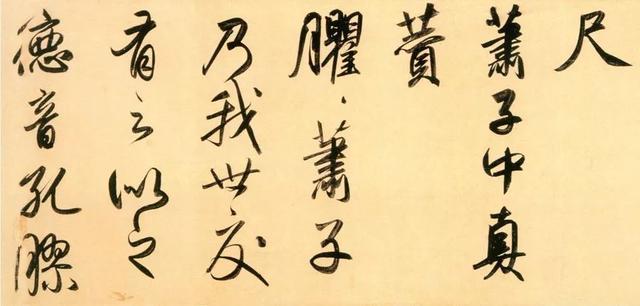 尺
蕭子中真
贊
臞〻蕭子
乃我世交
有之似之
德音孔膠